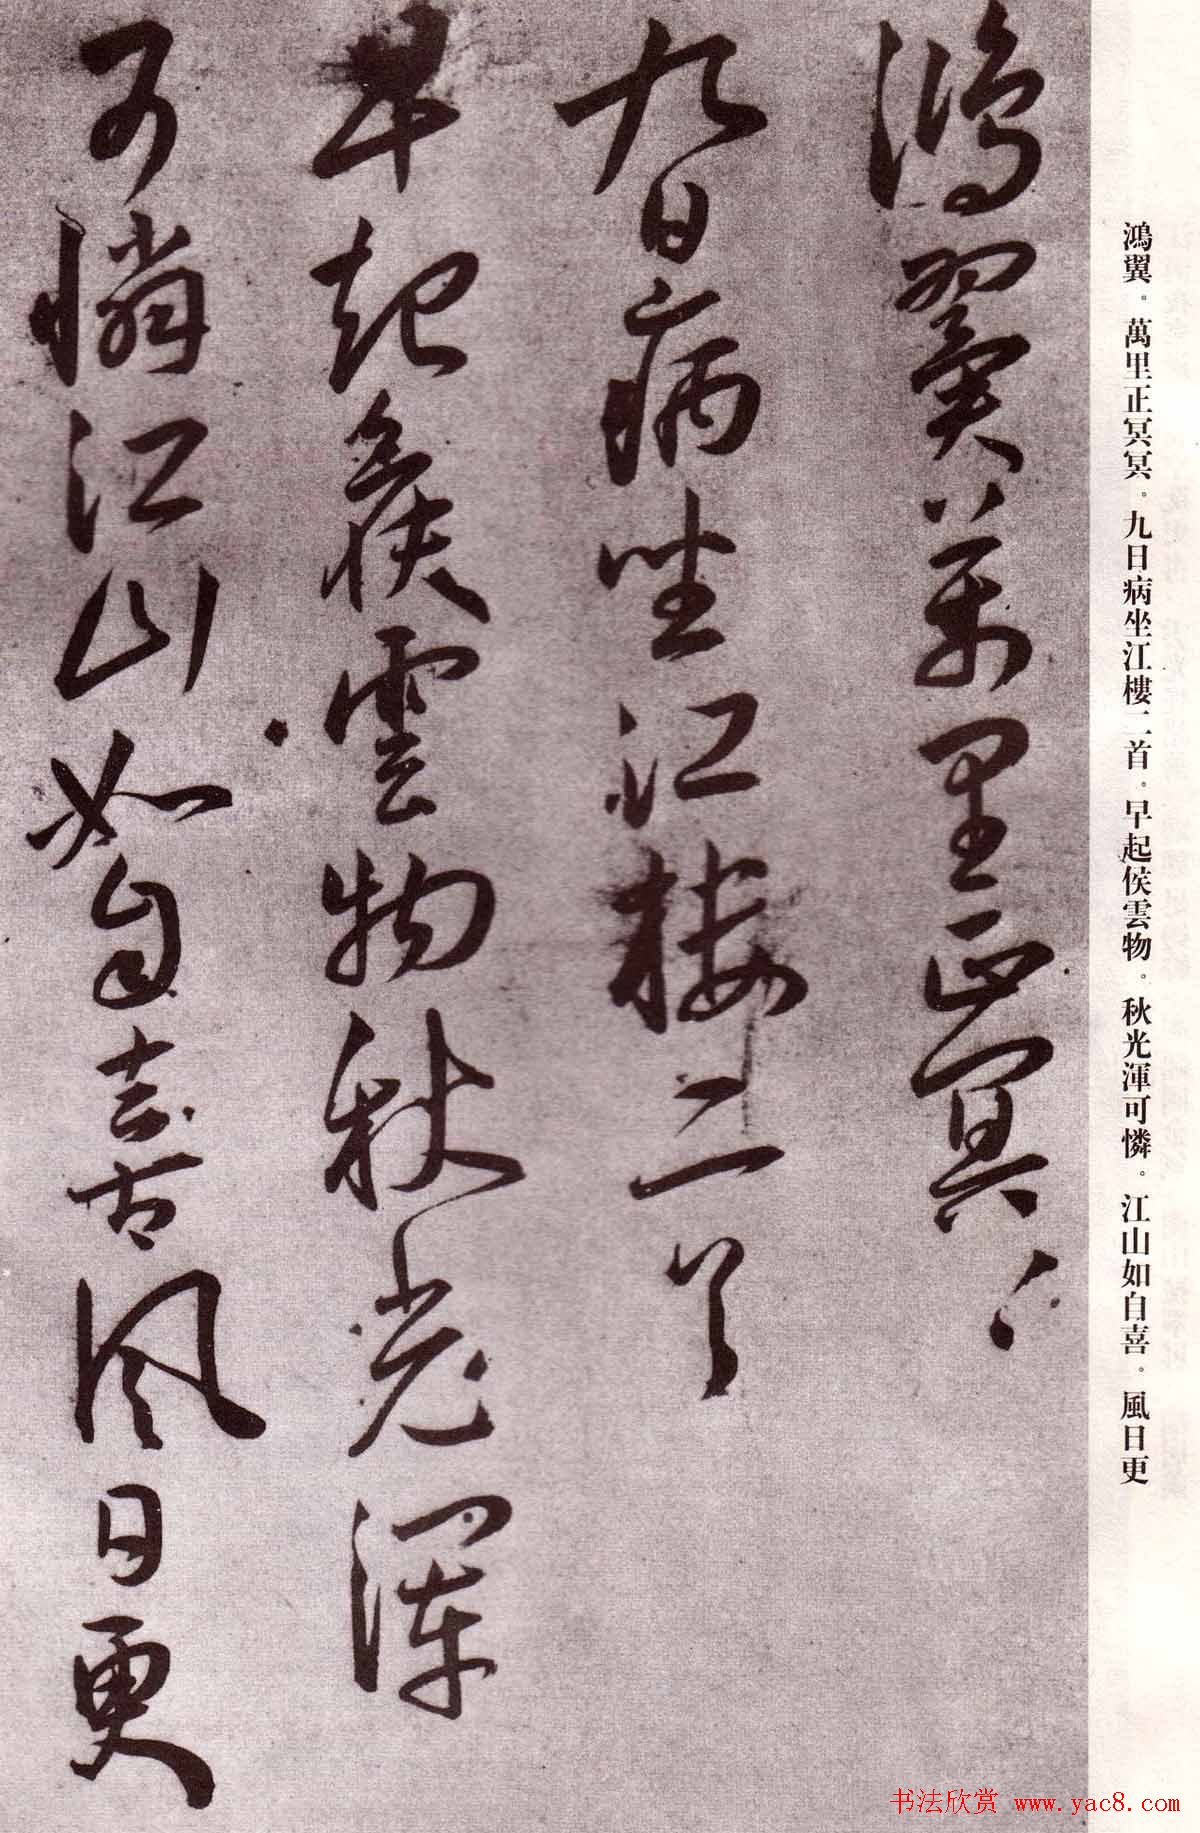 鴻翼萬里正冥〻
九日病坐江樓二首
早起侯雲物秋光渾
可憐江山如自喜風日更
鴻翼。萬里正冥冥。九日病坐江樓二首。早起侯雲物。秋光渾可憐。江山如自喜。風日更
书法欣赏 www.yac8.com